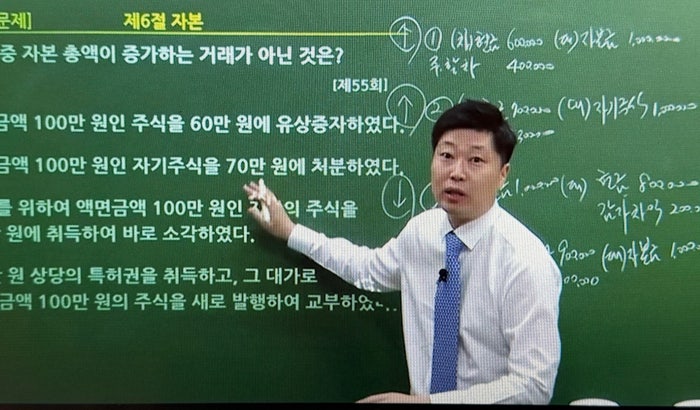 문제]
제6절 자본
중 자본 총액이 증가하는 거래가 아닌 것은?
[제55회]
금액 100만 원인 주식을 60만 원에 유상증자하였다.
금액 100만 원인 자기주식을 70만 원에 처분하였다.
를 위하여 액면금액 100만 원인 의 주식을
원에 취득하여 바로 소각하였다.
원 상당의 특허권을 취득하고, 그 대가로
금액 100만 원의 주식을 새로 발행하여 교부하였다.
↑ ① (차)현금 600,000 (대)자본금 1,000,000
주할차 400,000
↑ ② (대)자기주식 1,000,000
↓ (대) 현금 800,000
감자차익 200
900,000 (대)자본금 1,000,000